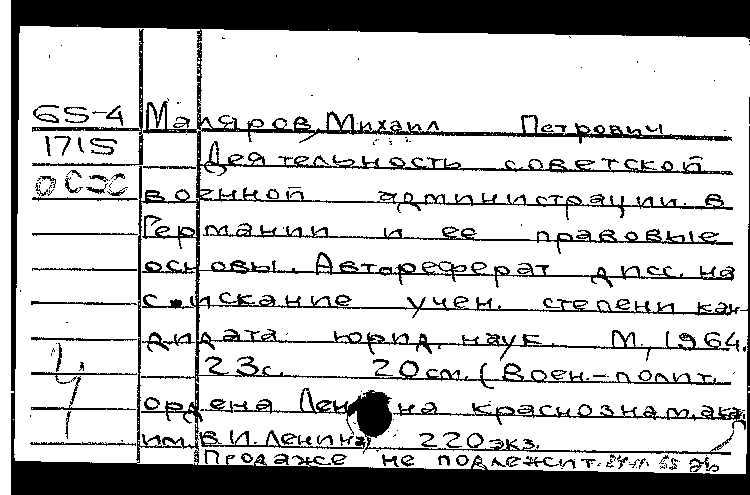 65-4 Маляров, Михаил Петрович
1715 Деятельность советской
военной администрации в
Германии и ее правовые
основы. Автореферат дисс. на
соискание учен. степени кан-
дидата юрид. наук. М., 1964.
23с. 20см. (Воен.-полит.
ордена Ленина краснознам. акад
им. В.И. Ленина) 220экз.
Продаже не подлежит.